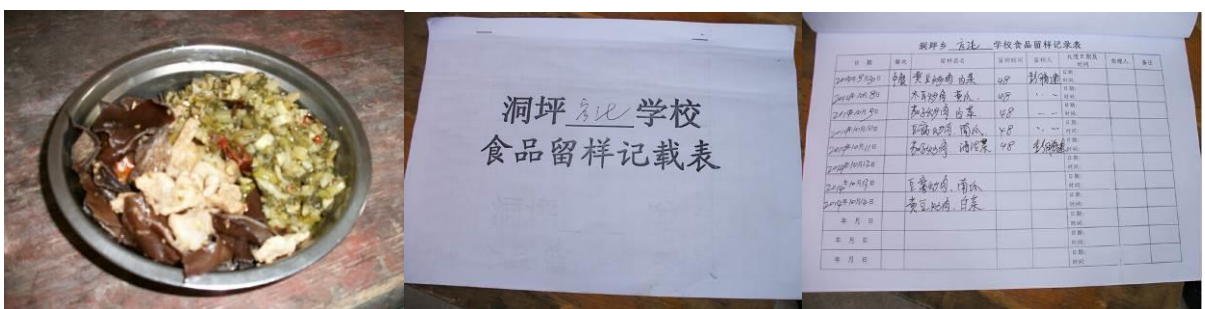 洞坪 学校
食品留样记载表
洞坪乡 学校食品留样记录表
日 期 餐次 留样品名 留样时间 留样人 处理日期及时间 处理人 备注
2014年9月30日 中餐 黄豆炒肉 白菜 48 日期: 时间:
2014年10月8日 木耳炒肉 黄瓜 48 日期: 时间:
2014年10月9日 茄子炒肉 白菜 48 日期: 时间:
2014年10月10日 豆腐炒肉 南瓜 48 日期: 时间:
2014年10月11日 茄子炒肉 48 日期: 时间:
2014年10月12日 日期: 时间:
2014年10月13日 豆腐炒肉、南瓜 日期: 时间:
2014年10月14日 黄豆炒肉、白菜 日期: 时间:
年 月 日 日期: 时间:
年 月 日 日期: 时间:
年 月 日 日期: 时间: